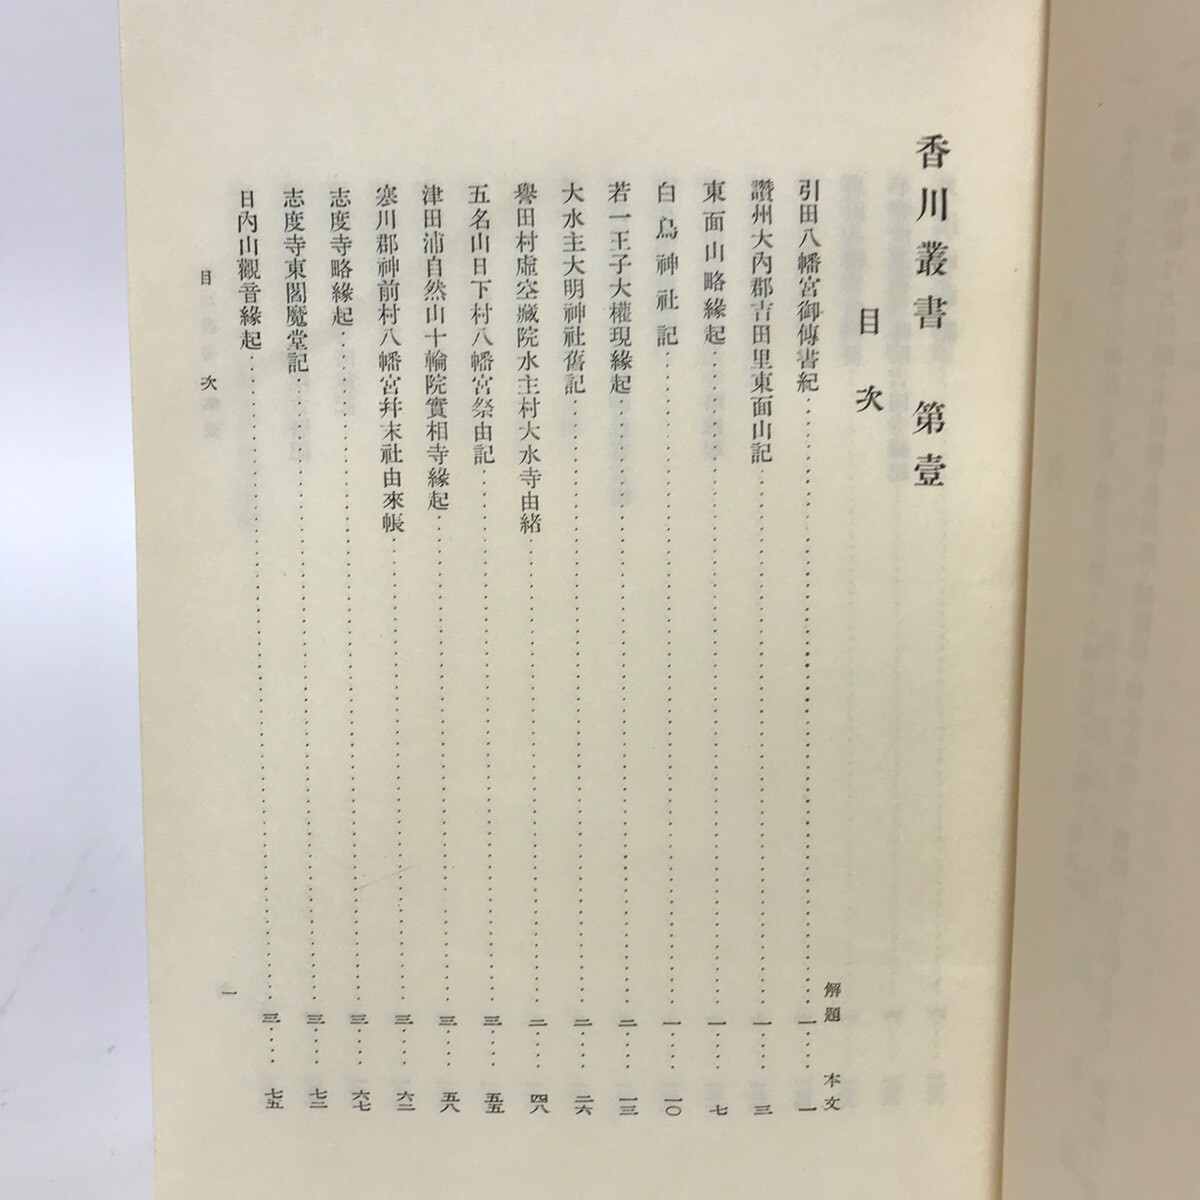 香川叢書　第壹
目次
解題　本文
引田八幡宮御傳書紀……一……一
讚州大內郡吉田里東面山記……一……三
東面山略緣起……一……七
白鳥神社記……一……一〇
若一王子大權現緣起……二……一三
大水主大明神社舊記……二……二六
譽田村虛空藏院水主村大水寺由緒……二……四八
五名山日下村八幡宮祭由記……三……五五
津田浦自然山十輪院實相寺緣起……三……五八
寒川郡神前村八幡宮幷末社由來帳……三……六二
志度寺略緣起……三……六七
志度寺東閻魔堂記……三……七二
日內山觀音緣起……三……七五
目次
一